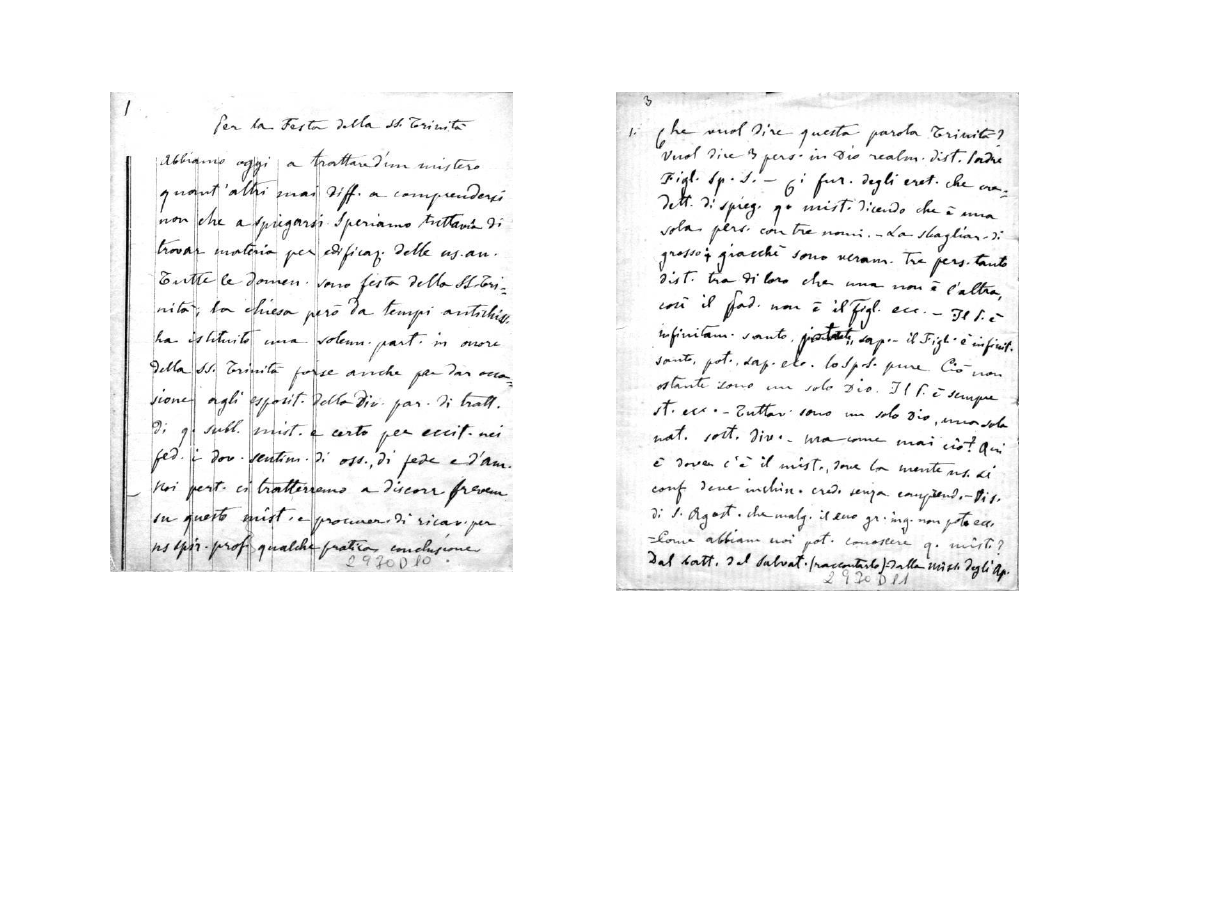 1
Per la Festa della SS. Trinità
Abbiamo oggi a trattare d'un mistero
quant'altri mai diff. a comprendersi
non che a spiegarsi. Speriamo tuttavia di
trovar materia per edificaz. delle ns. an.
Tutte le domen. sono festa della SS. Tri-
nità; la chiesa però da tempi antichiss.
ha istituito una solenn. part. in onore
della SS. Trinità forse anche per dar occa-
sione agli esposit. della Div. par. di tratt.
di q. subl. mist. e certo per eccit. nei
fed. i dov. sentim. di oss., di fede e d'am.
Noi pert. ci tratterremo a discorr. brevem.
su questo mist. e procurer. di ricav. per
ns spir. prof. qualche pratica conclusione
2930D10
3
1. Che vuol dire questa parola Trinità?
Vuol dire 3 pers. in Dio realm. dist. Padre
Figl. Sp. S. — Ci fur. degli eret. che cre-
dett. di spieg. q. mist. dicendo che è una
sola pers. con tre nomi. — La sbagliar. di
grosso giacchè sono veram. tre pers. tanto
dist. tra di loro che una non è l'altra,
così il Pad. non è il Figl. ecc. — Il P. è
infinitam. santo, sap. — il Figl. è infinit.
santo, pot., sap. ecc. lo Sp. S. pure Ciò non
ostante sono un solo Dio. Il P. è sempre
st. ecc. — Tuttav. sono un solo Dio, una sola
nat. sost. div. — Ma come mai ciò? Qui
è dove c'è il mist., dove la mente ns. si
conf. deve inchin. cred. senza comprend. — Dis.
di S. Agost. che malg. il suo gr. ing. non potè ecc.
= Come abbiam noi pot. conoscere q. mist.?
Dal batt. del Salvat. (raccontarlo) — dalla miss. degli Ap.
2930D11